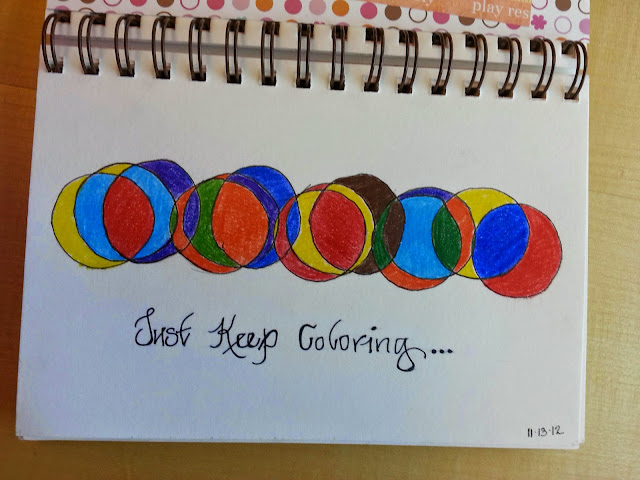 play res
Just Keep Coloring...
11·13·12